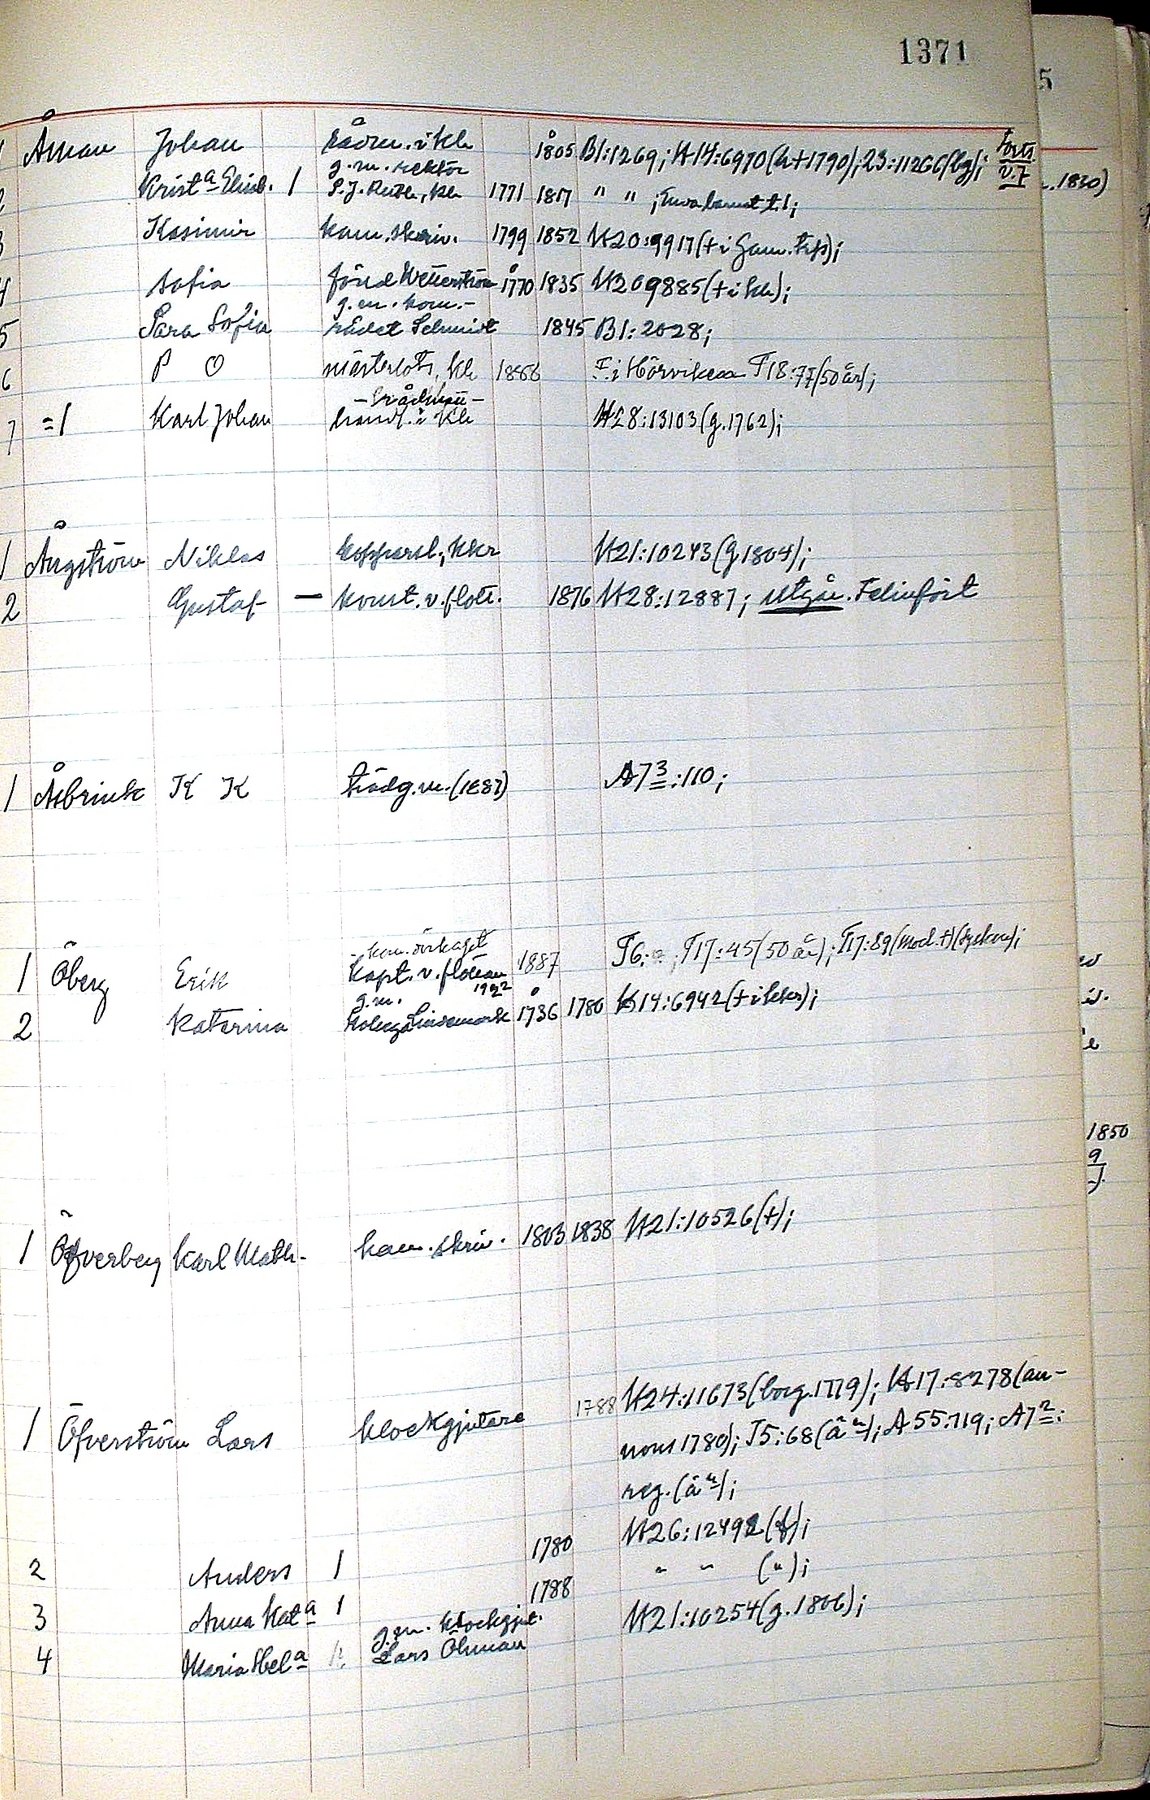 1371
5
1 Åman Johan rådm. i Kh 1805 B1:1269; K14:6970(h+1790); 23:11266(bg); Forts v. 7
g.m. rektor
2 Krist:a Elisb. 1 S.J. Kh 1771 1817 " " ;
3 Kasimir kam. skriv. 1799 1852 K20:9917(+ i);
4 Sofia född Wetterström 1770 1835 K20 9885(+ i Kh);
g.m. kom.-
5 Sara Sofia rådet Schmidt 1845 B1:2028;
6 P O mästerlots, Kh 1866 F. i Hörviken T18:77(50 år);
- & rådman -
7 =1 Karl Johan handl. i Kh K28:13103(g.1762);
1 Ångström Niklas kopparsl., Kkr K21:10243(g 1804);
2 Gustaf — konst. v. flott. 1876 K28:12887; Utgår. Felinfört
1 Åsbrink K K trädg.m.(1887) A7 3:110;
- kom. örkapt
1 Öberg Erik kapt. v. flottan 1922 1887 T6: ; T17:45(50 år); T17:89(mod.+)(syskon);
g.m.
2 Katarina kolega Lindemark 1736 1780 K14:6942(+ i kkr);
1 Öfverberg Karl Math- kam. skriv. 1803 1838 K21:10526(+);
1 Öfverström Lars klockgjutare 1788 K24:11673(borg.1779); K17:8278(an-
nons 1780); J5:68(å"); A55:719; A7 2:
reg.(å");
2 Anders 1 1780 K26:12492(f);
3 Anna Kat:a 1 1788 " " (");
g.m. klockgjut.
4 Maria Hel:a 1 Lars Öhman K21:10254(g.1806);
.1820)
1850
9